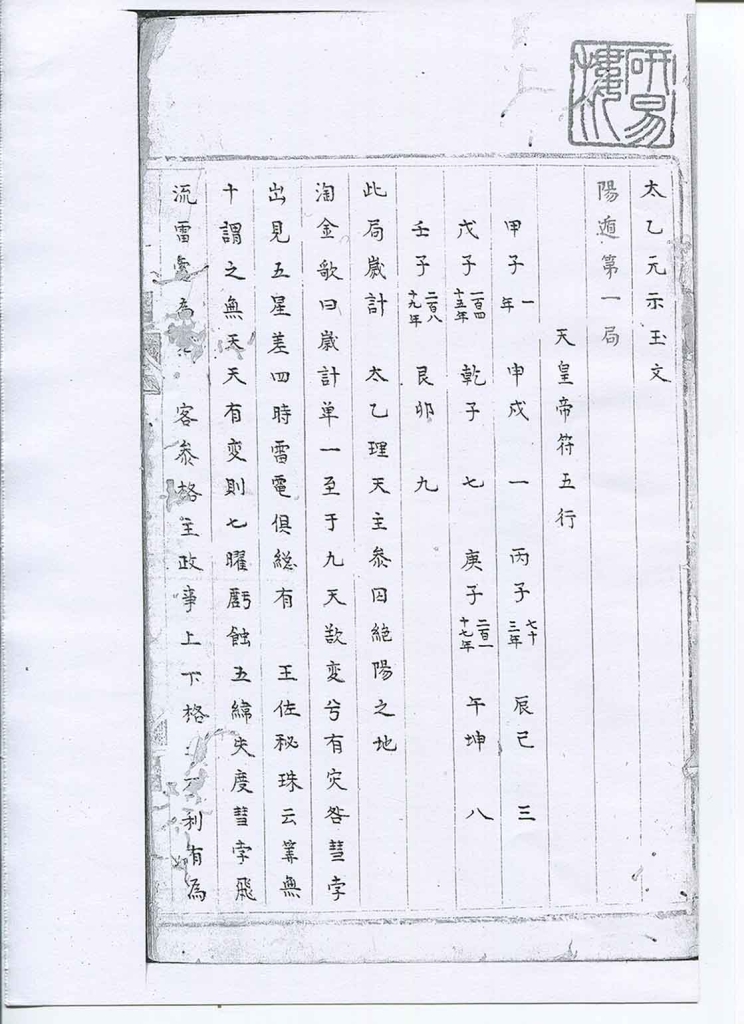 研易樓
太乙元示玉文
陽遁第一局
天皇帝符五行
甲子一年 申戍 一 丙子七十三年 辰己 三
戊子一百四十五年 乾子 七 庚子二百一十七年 午坤 八
壬子二百八十九年 艮卯 九
此局歲計 太乙理天主參囚絶陽之地
淘金歌曰歲計单一至于九天欻变兮有灾咎彗孛
出見五星差四時雷電俱総有 王佐秘珠云筭無
十謂之無天天有变則七曜虧蝕五緯失度彗孛飛
流雷 為 客参格主政事上下格 利有為